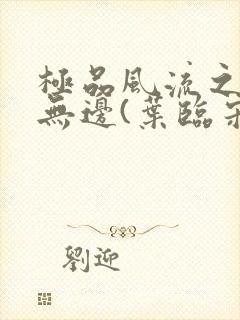 極品風流之
無邊(葉臨
劉迎